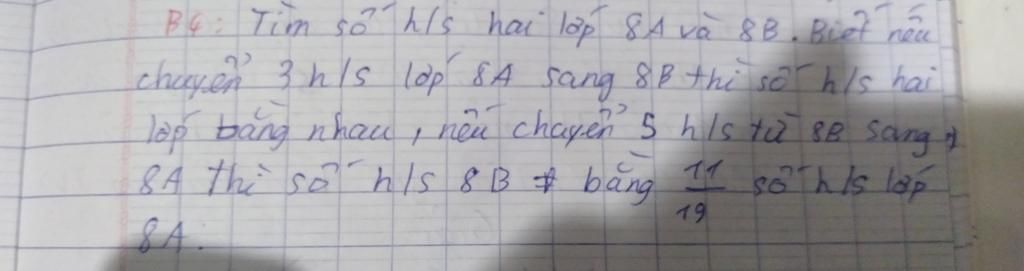 B4: Tìm số h/s hai lớp 8A và 8B. Biết nếu
chuyển 3 h/s lớp 8A sang 8B thì số h/s hai
lớp bằng nhau, nếu chuyển 5 h/s từ 8B sang
8A thì số h/s 8B bằng 11/19 số h/s lớp
8A.